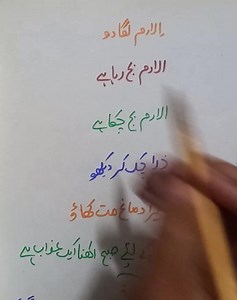 الارم لگا دو
الارم بج رہا ہے
الارم بج چکا ہے
ذرا چیک کر دیکھو
دماغ مت کھاؤ
لیے صبح اٹھنا ایک عذاب ہے